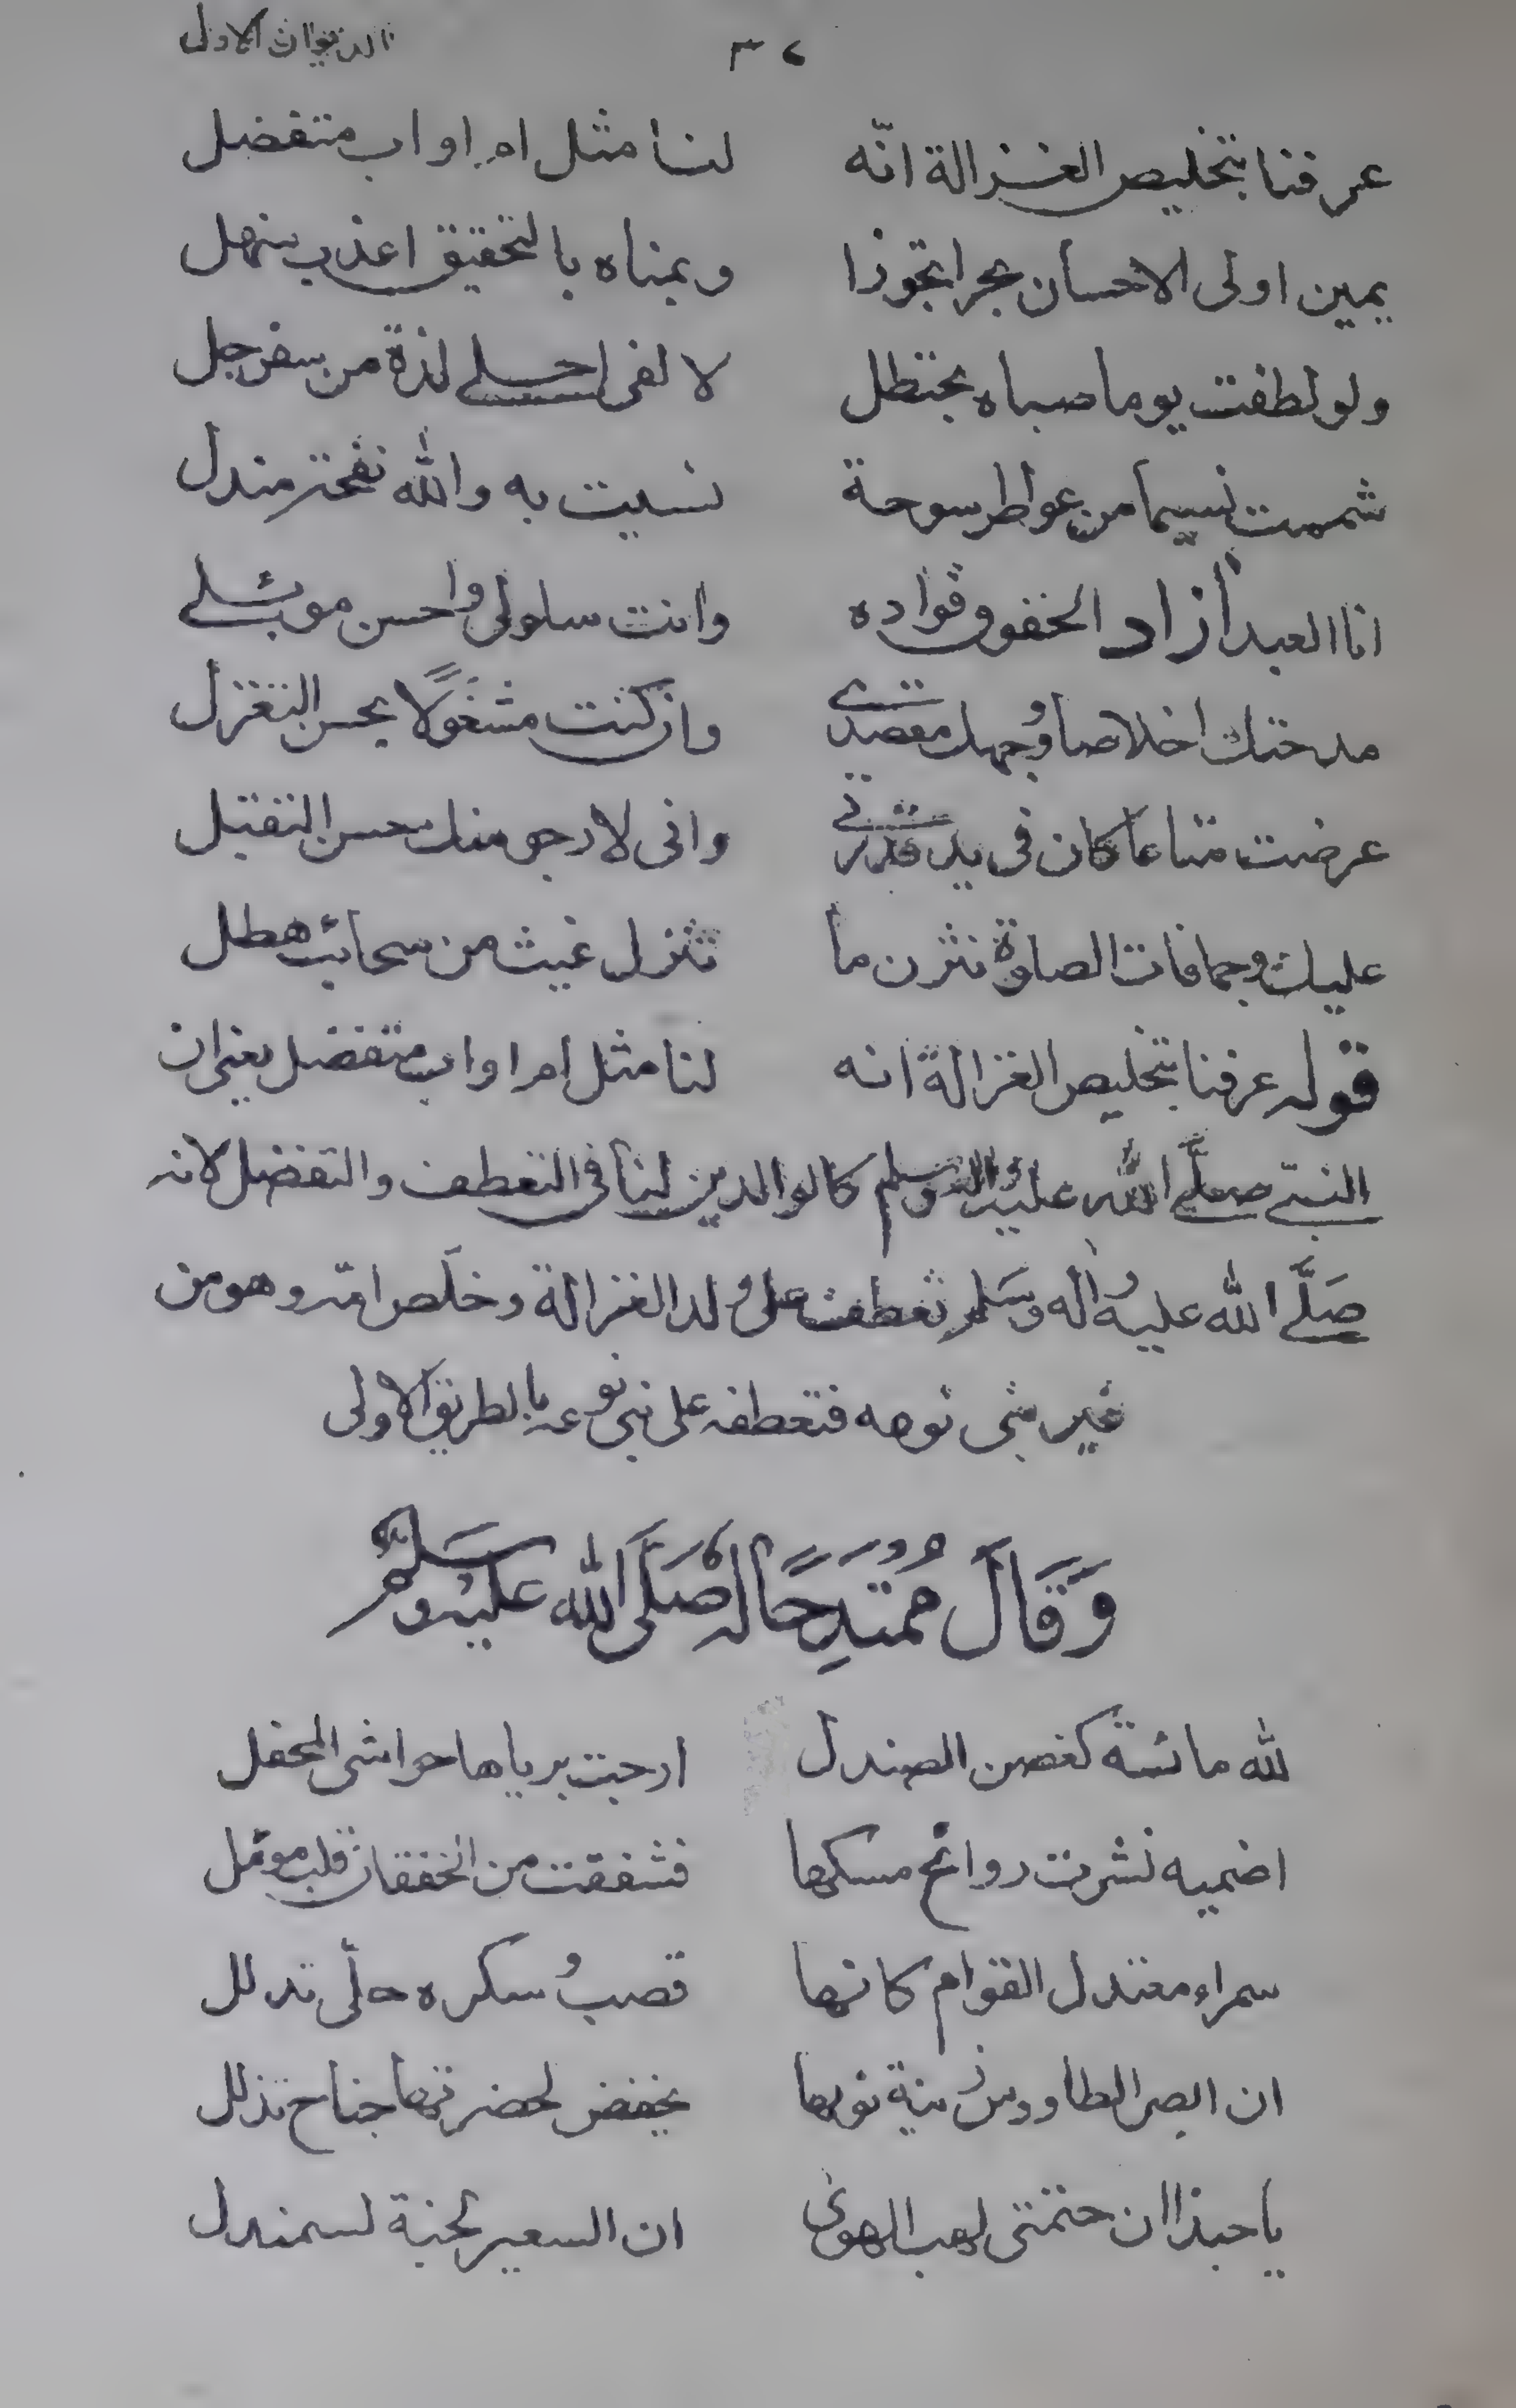 ٣٤ الديوان الاول
عرفنا بتخليص الغزالة انّه لنا مثل ام او اب متفضل
يمين اولى الاحسان بحرا تجوزا ويمناه بالتحقيق اعذب منهل
ولو لطفت يوما صباه بحنظل لالفى احلى لذة من سفرجل
شممت نسيما من عواطر سوحة نسيت به والله نفحة مندل
انا العبد آزاد الخفوق فؤاده وانت سلولى واحسن موئلى
مدحتك اخلاصا وجهك مقصدى وان كنت مشغولًا بحسن التغزل
عرضت متاعا كان فى يد قدرتى وانى لارجو منك حسن التقبل
عليك وجمافات الصلوة نثرن ما تنزل غيث من سحائب هطل
قوله عرفنا بتخليص الغزالة انه لنا مثل ام او اب متفضل يعنى ان
النبى صلّى الله عليه واله وسلم كالوالدين لنا فى التعطف والتفضل لانه
صَلَّى الله عليه واٰله وسَلم تعطف على ولد الغزالة وخلّص امّه وهو من
غير بنى نوعه فتعطفه على بنى نوعه بالطريق الاولى
وَقَالَ مُمْتَدِحًا لَهُ صَلَّى اللهُ عَلَيْهِ وَسَلَّم
لله مائسة كغصن الصندل ارجت برياها حواشى المحفل
اضميه نشرت روائح مسكها فشفقت من الخفقان قلب مؤمل
سمراء معتدل القوام كانها قصبُ سكره حلّى تدلل
ان ابصر الطاووس زينة ثوبها يخفض لحضرتها جناح تذلل
يا حبذا ان ختمتنى لهب الهوى ان السعير لجنة لسمندل